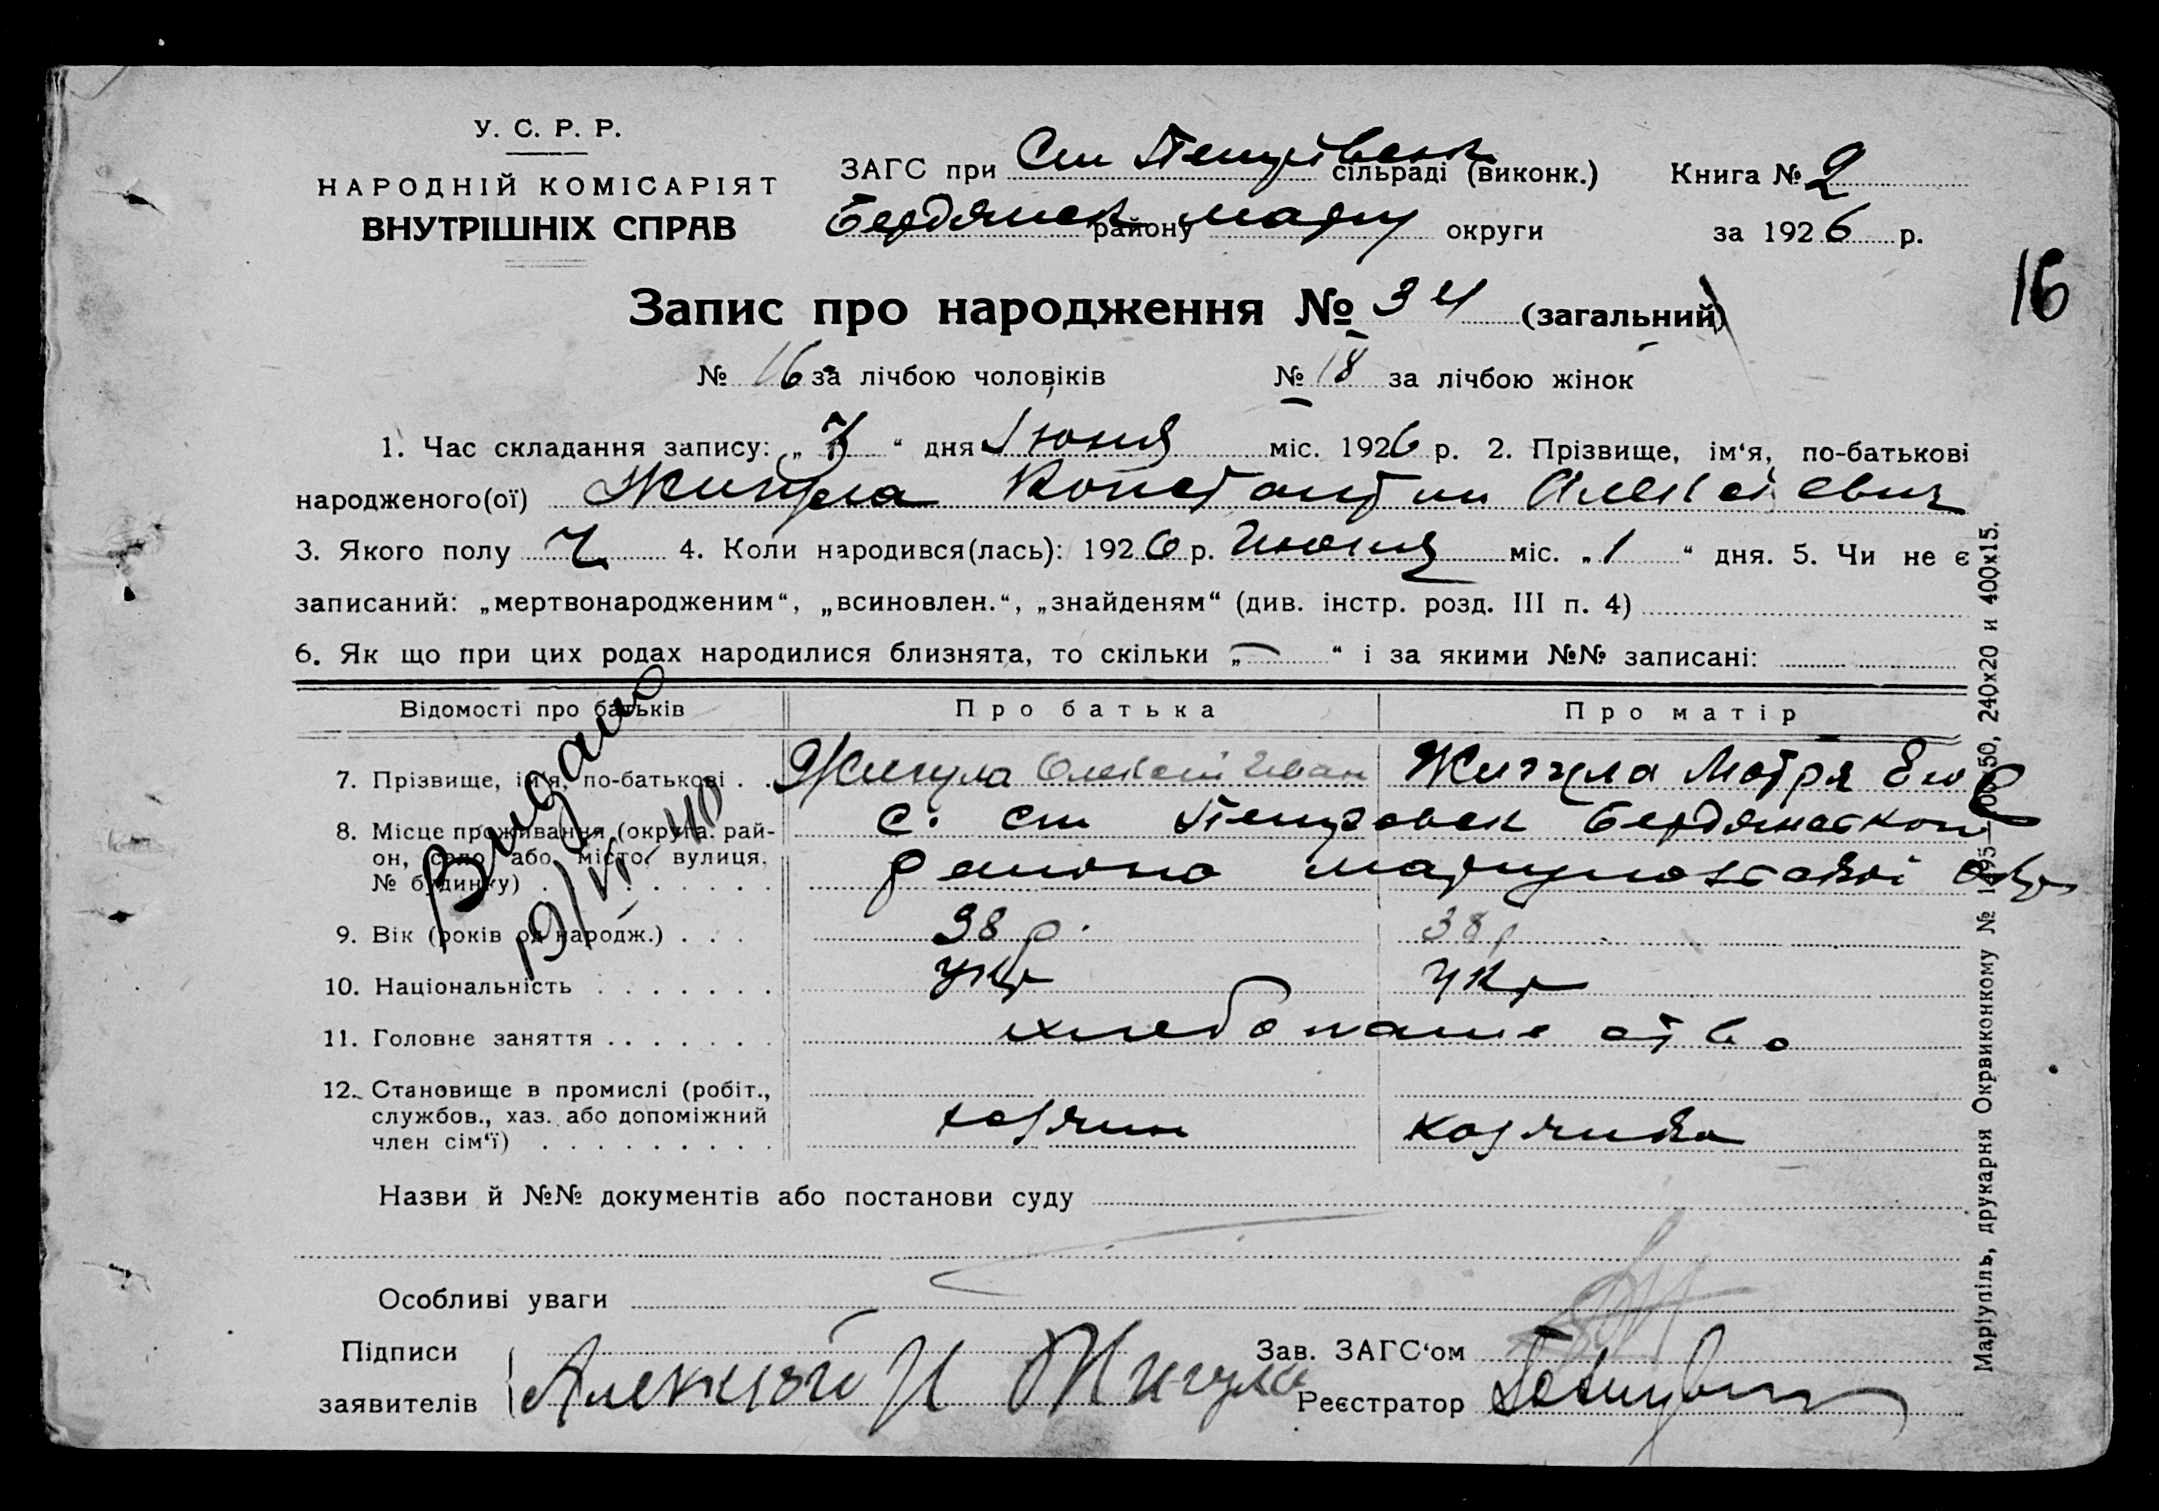 У. С. Р. Р.
НАРОДНІЙ КОМІСАРІЯТ
ВНУТРІШНІХ СПРАВ
ЗАГС при Ст Петрівськ сільраді (виконк.)
Бердянськ району Маріу округи
Книга № 2
за 1926 р.
16
Запис про народження № 34 (загальний)
№ 16 за лічбою чоловіків № 18 за лічбою жінок
1. Час складання запису: „ 7 “ дня Июня міс. 1926 р. 2. Прізвище, ім‘я, по-батькові
народженого(ої) Жигула Константин Алексеевич
3. Якого полу Ч 4. Коли народився(лась): 1926 р. Июня міс. „ 1 “ дня. 5. Чи не є
записаний: „мертвонародженим“, „всиновлен.“, „знайденям“ (див. інстр. розд. III п. 4)
6. Як що при цих родах народилися близнята, то скільки „ — “ і за якими №№ записані:
Відомості про батьків Про батька Про матір
7. Прізвище, ім‘я, по-батькові . . Жигула Олексій Иван Жигула Мотря
8. Місце проживання (округа. рай-
он, село або місто. вулиця.
№ будинку) . . . . . . . . .
с. ст Петровськ Бердянського
району Маріупольської окр
9. Вік (років од народж.) . . . 38 р. 38 р
10. Національність . . . . . . . укр укр
11. Головне заняття . . . . . . . хлебопашество
12. Становище в промислі (робіт.,
службов., хаз. або допоміжний
член сім‘ї) . . . . . . . . .
хазяин хазяйка
Видано
19/VI 40
Назви й №№ документів або постанови суду
Особливі уваги
Підписи
заявителів
Алексей И Жигула
Зав. ЗАГС‘ом
Реєстратор
Маріупіль, друкарня Окрвиконкому № 1395—10050, 240x20 и 400x15.